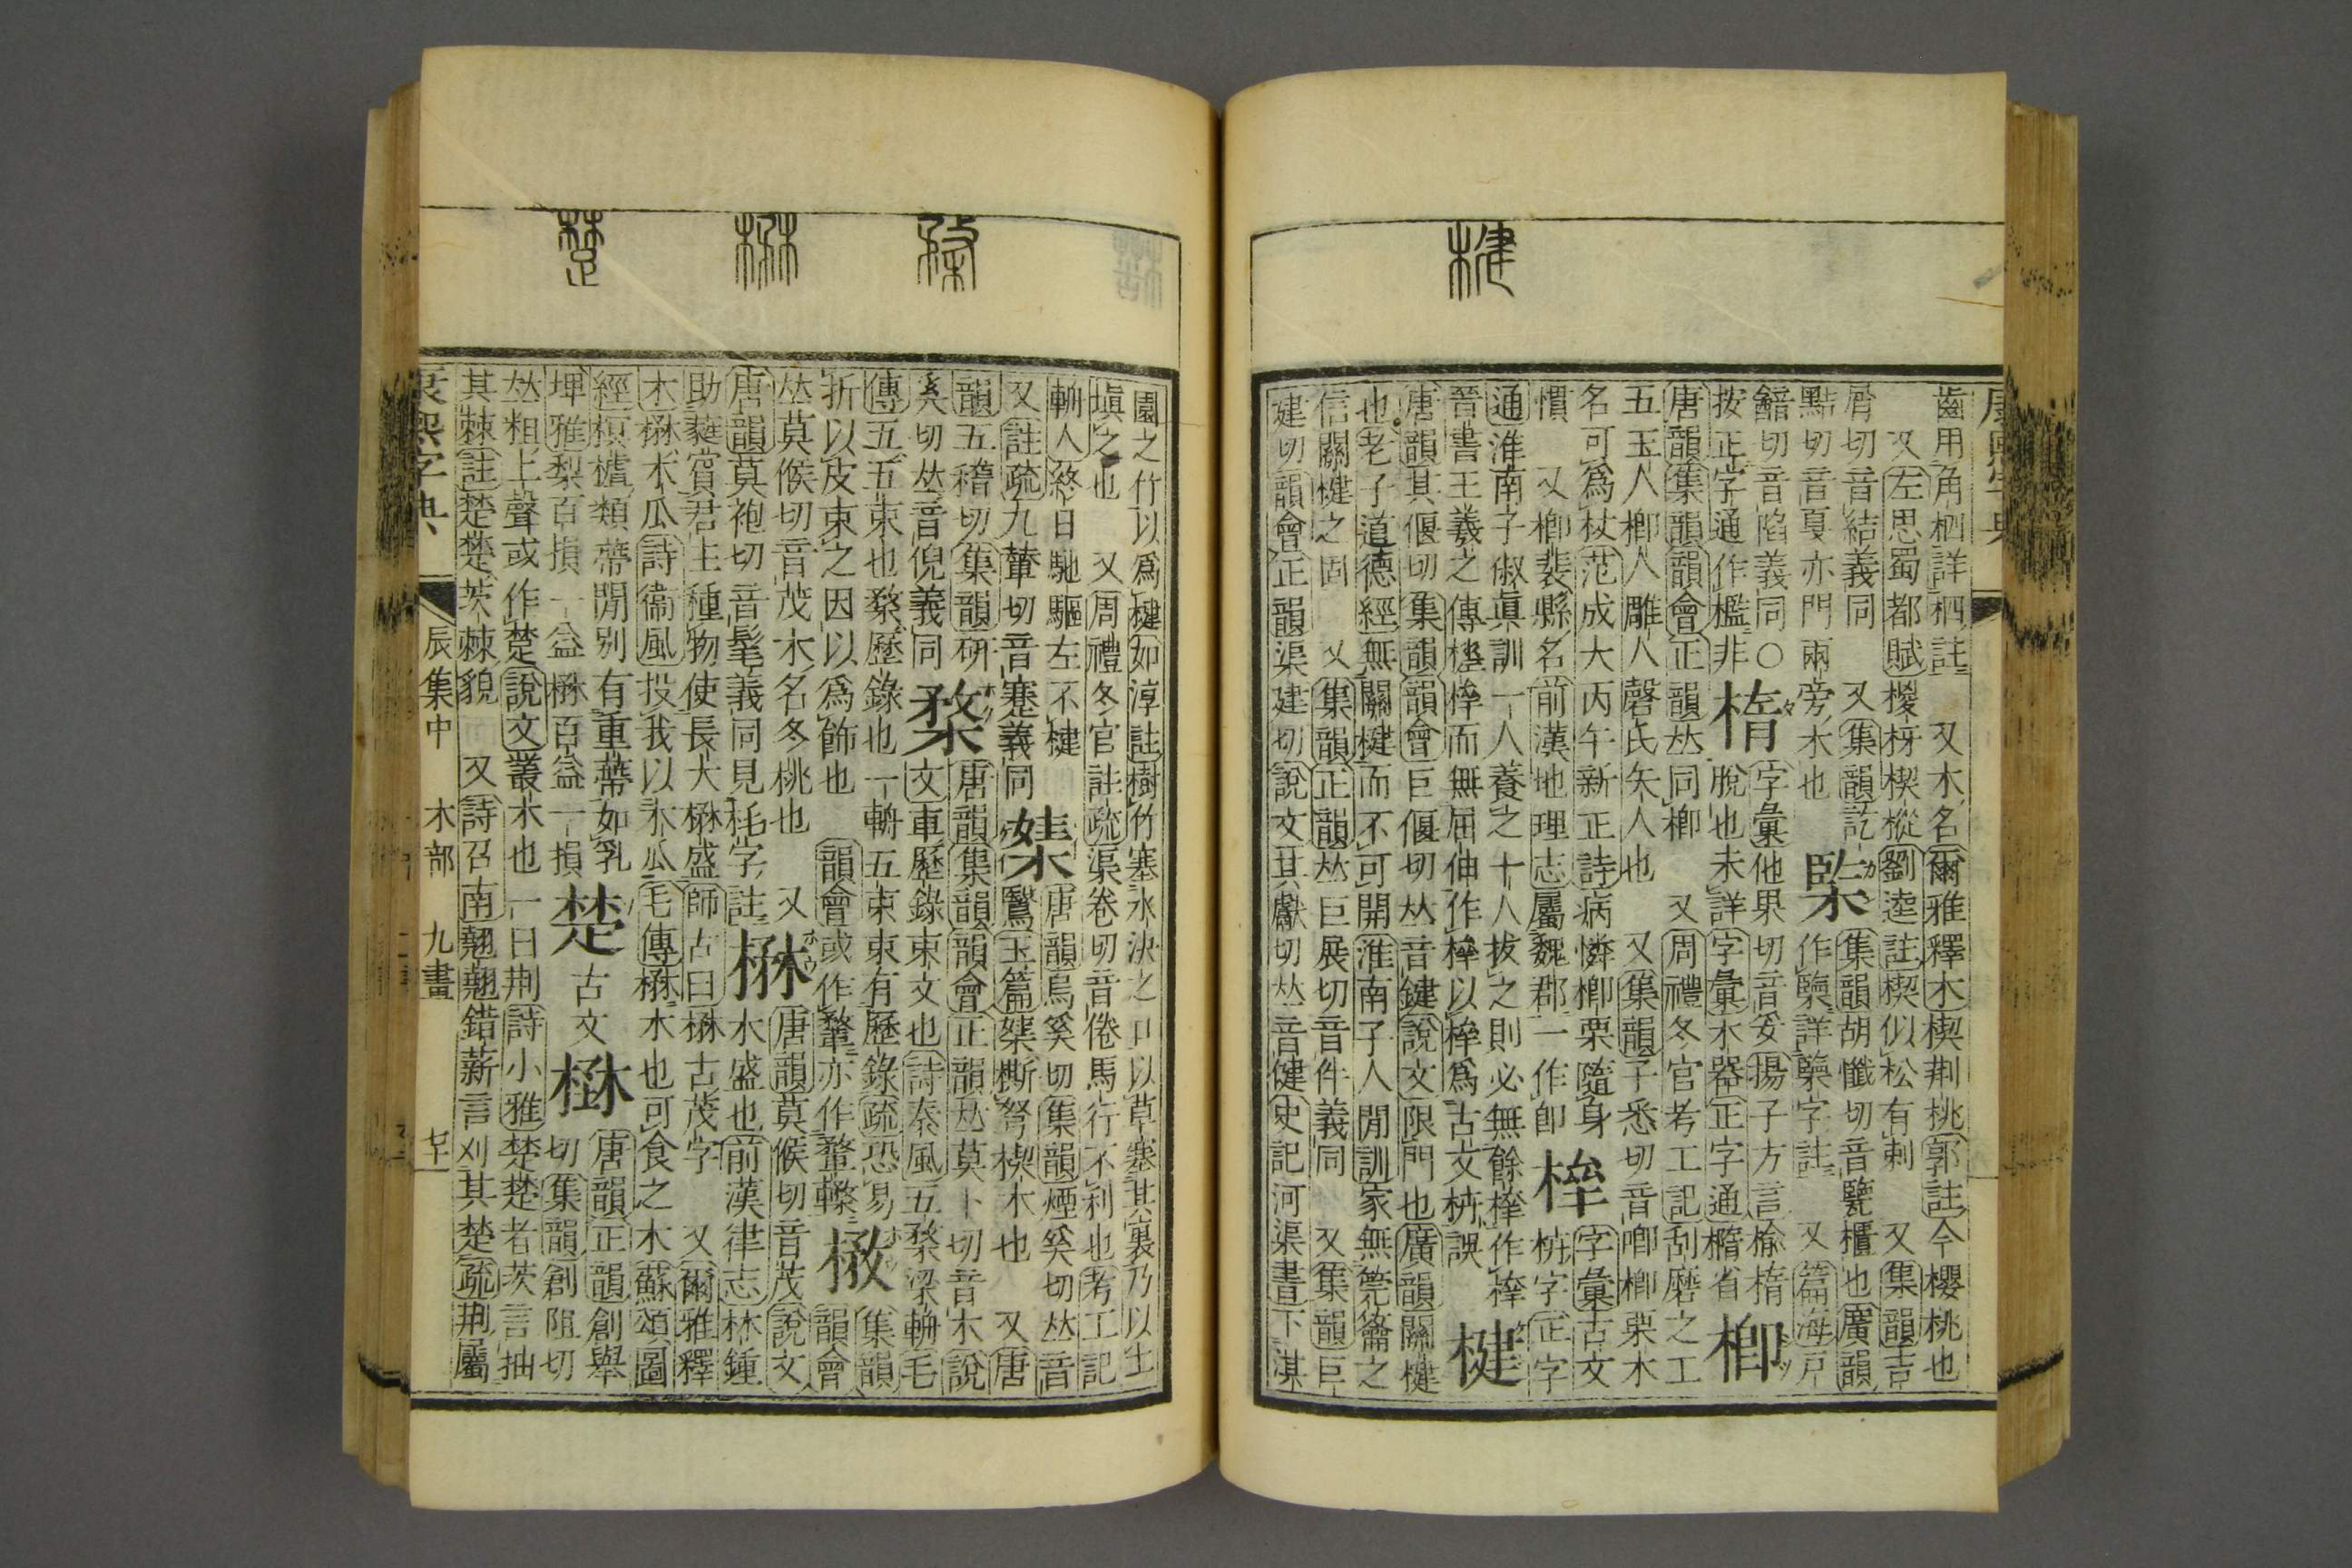 康熙字典
齒用角柶詳柶註 又木名爾雅釋木楔荆桃郭註今櫻桃也
又左思蜀都賦㮨枒楔樅劉逵註楔似松有刺 又集韻吉
屑切音結義同 又集韻訖 集韻胡懺切音櫃也廣韻
黠切音戛亦門兩旁木也 作詳字註 又篇海戸
切音陷義同○ 楕 字彙他果切音妥揚子方言楡楕
按正字通作檻非 脫也未詳字彙木器正字通橢省 楖
唐韻集韻韻會正韻𠀤同楖 又周禮冬官考工記刮磨之工
五玉人楖人雕人磬氏矢人也 又集韻子悉切音喞楖栗木
名可爲杖范成大丙午新正詩病憐楖栗隨身 字彙古文
慣 又楖裴縣名前漢地理志屬魏郡一作卽 字正字
通淮南子俶眞訓一人養之十人拔之則必無餘作
晉書王羲之傳極而無屈伸作以爲古文誤 楗
唐韻其偃切集韻韻會巨偃切𠀤音鍵說文限門也廣韻關楗
也老子道德經無關楗而不可開淮南子人閒訓家無筦籥之
信關楗之固 又集韻正韻𠀤巨展切音件義同 又集韻巨
建切韻會正韻渠建切說文其獻切𠀤音健史記河渠書下淇
園之竹以爲楗如淳註樹竹塞水決之口以草塞其裏乃以土
塡之也 又周禮冬官註疏渠卷切音倦馬行不利也考工記
輈人終日馳驅左不楗 唐韻烏奚切集韻煙奚切𠀤音
又註疏九輦切音蹇義同 鷖玉篇㭒弩楔木也 又唐
韻五稽切集韻研 唐韻集韻韻會正韻𠀤莫卜切音木說
奚切𠀤音倪義同 楘 文車歷錄束文也詩秦風五楘梁輈毛
傳五五束也楘歷錄也一輈五束束有歷錄疏恐易 集韻
折以皮束之因以爲飾也 韻會或作鞪亦作 韻會
𠀤莫候切音茂木名冬桃也 又唐韻莫候切音茂說文
唐韻莫袍切音髦義同見枆字註 楙 木盛也前漢律志林鍾
助蕤賔君主種物使長大楙盛師古曰楙古茂字 又爾雅釋
木楙木瓜詩衞風投我以木瓜毛傳楙木也可食之木蘇頌圖
經榠樝類蔕閒別有重蔕如乳 唐韻正韻創舉
埤雅梨百損一益楙百益一損 楚 古文 切集韻創阻切
𠀤粗上聲或作楚說文叢木也一曰荆詩小雅楚楚者茨言抽
其棘註楚楚茨棘貌 又詩召南翹翹錯薪言刈其楚疏荆屬
康熙字典 辰集中 木部 九畫